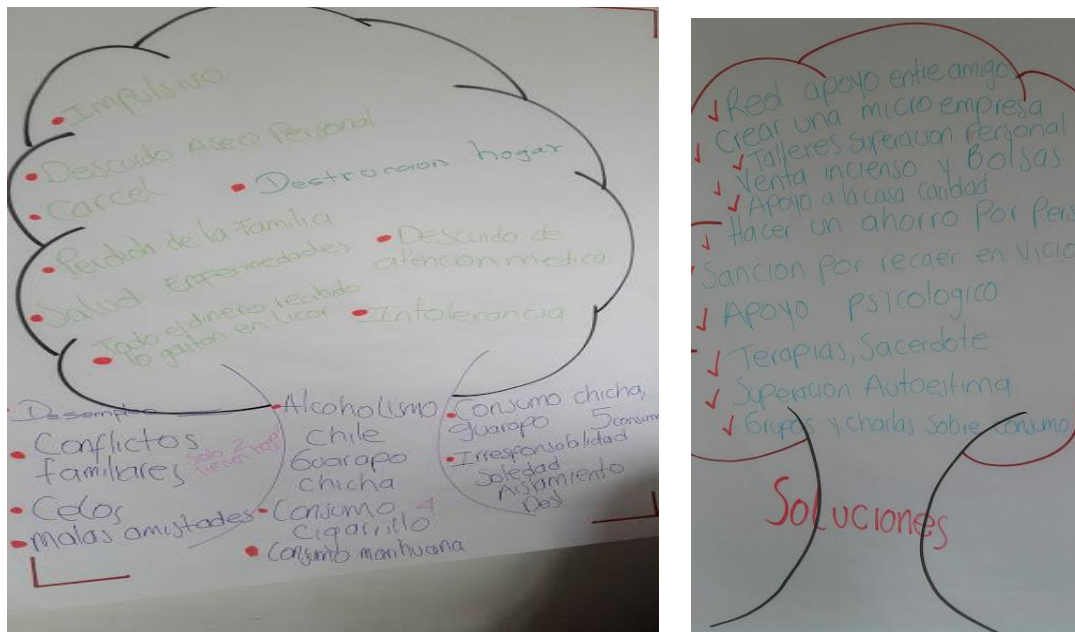 • Impulsivo
• Descuido Aseo Personal
• Carcel
• Destruncion hogar
• Perdida de la Familia
• Salud Enfermedades
• Descuido de
atencion medica
• Todo el dinero recibido
lo gastan en Licor
• Intolerancia
• Desempleo
• Conflictos
familiares
• Celos
• Malas amistades
• Alcoholismo
Chile
Guarapo
chicha
• Consumo 4
Cigarrillo
• Consumo marihuana
• Consumo chicha,
guarapo 5 consum
• Irresponsabilidad
Soledad
Aislamiento
Des
✓ Red apoyo entre amigos
✓ Crear una micro empresa
✓ Talleres Superacion Personal
✓ Venta incienso y Bolsas
✓ Apoyo a la casa caridad
✓ Hacer un ahorro Por Pers
Sancion Por recaer en Vicio
✓ Apoyo psicologico
✓ Terapias, Sacerdote
✓ Superacion Autoestima
✓ Grupos y charlas Sobre consumo
Soluciones